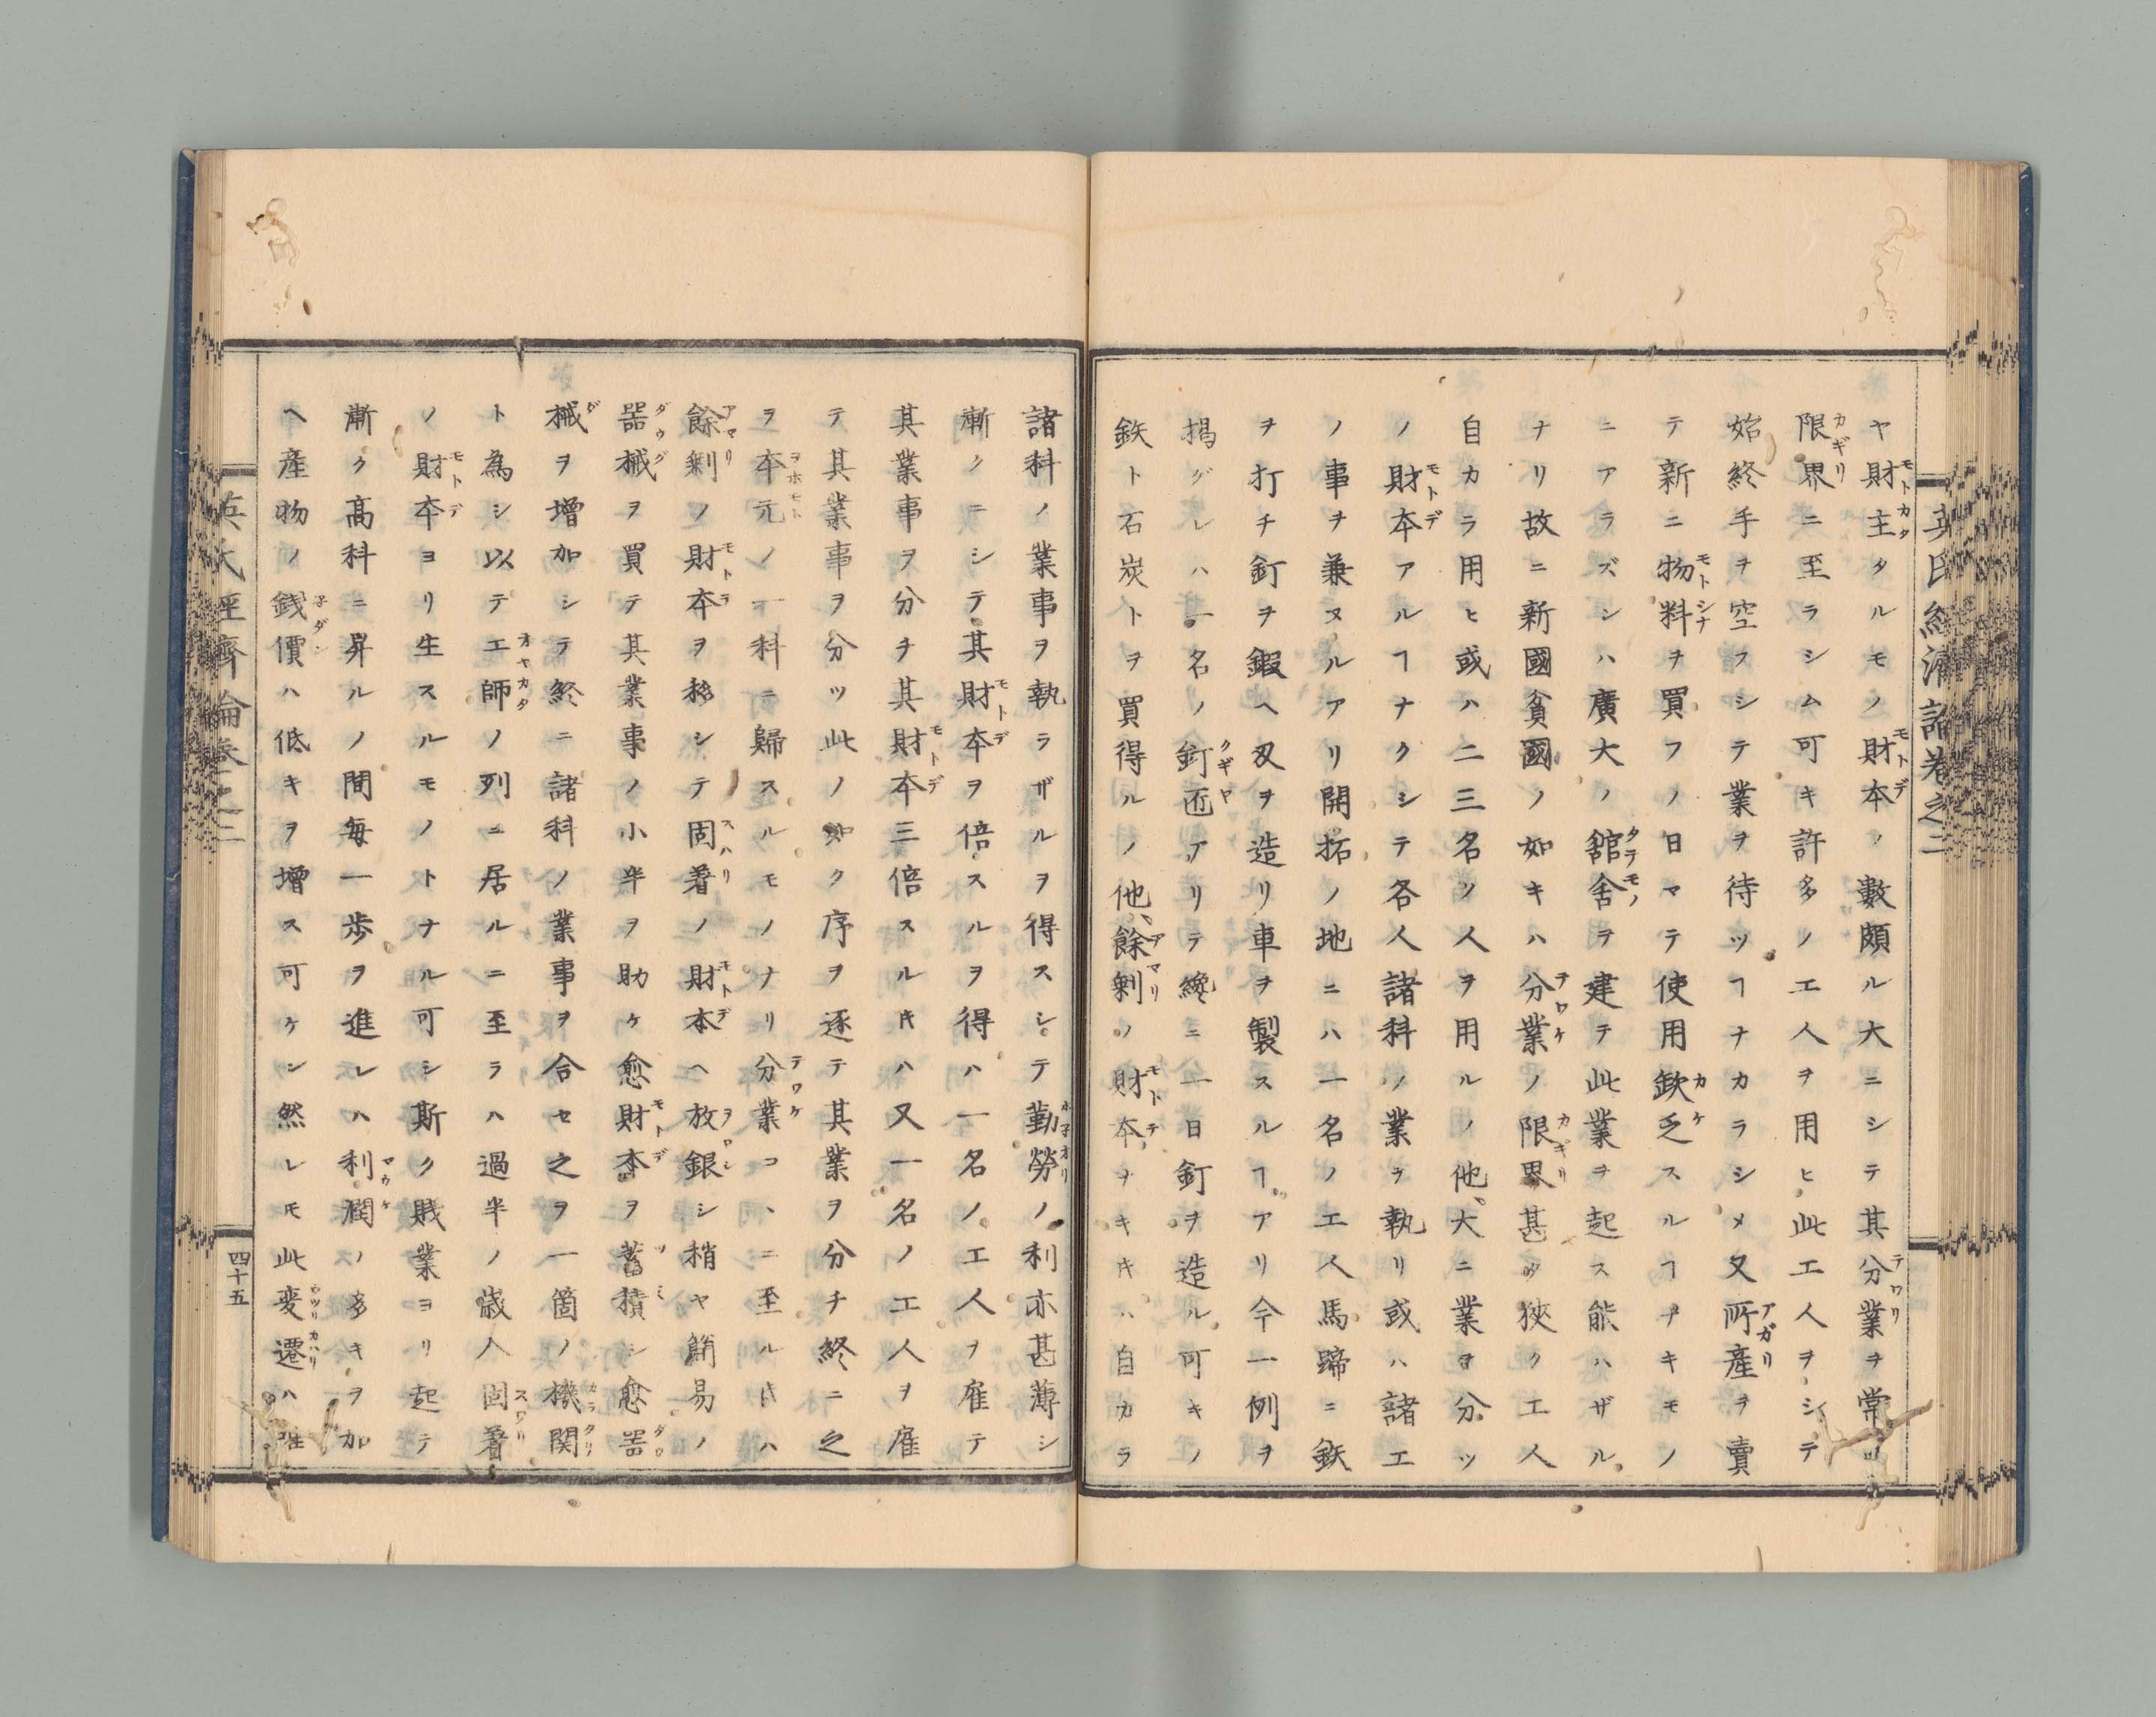 英氏經濟論卷之二
ヤ財主タルモノ財本ノ數頗ル大ニシテ其分業ヲ常ノ
限界ニ至ラシム可キ許多ノ工人ヲ用ヒ此工人ヲシテ
始終手ヲ空フシテ業ヲ待ツヿナカラシメ又所產ヲ賣
テ新ニ物料ヲ買フノ日マテ使用欽乏スルヿナキモノ
ニアラズンハ廣大ノ舘舍ヲ建テ此業ヲ起ス能ハザル
ナリ故ニ新國貧國ノ如キハ分業ノ限界甚タ狹ク工人
自カラ用ヒ或ハ二三名ノ人ヲ用ルノ他、大ニ業ヲ分ツ
ノ財本アルヿナクシテ各人諸科ノ業ヲ執リ或ハ諸工
ノ事ヲ兼ヌルアリ開拓ノ地ニハ一名ノ工人馬蹄ニ鉄
ヲ打チ釘ヲ鍜ヘ刄ヲ造リ車ヲ製スルヿアリ今一例ヲ
揭グレハ一名ノ釘匠アリテ纔ニ一日釘ヲ造ル可キノ
鉄ト石炭トヲ買得ルノ他、餘剩ノ財本ナキキハ自カラ
諸科ノ業事ヲ執ラザルヲ得スシテ勤勞ノ利亦甚薄シ
漸クニシテ其財本ヲ倍スルヲ得ハ一名ノ工人ヲ雇テ
其業事ヲ分チ其財本三倍スルキハ又一名ノ工人ヲ雇
テ其業事ヲ分ツ此ノ如ク序ヲ逐テ其業ヲ分チ終ニ之
ヲ本元ノ一科ニ歸スルモノナリ分業コヽニ至ルキハ
餘剩ノ財本ヲ移シテ固着ノ財本ヘ放銀シ稍ヤ簡易ノ
器械ヲ買テ其業事ノ小半ヲ助ケ愈財本ヲ蓄積シ愈器
械ヲ增加シテ終ニ諸科ノ業事ヲ合セ之ヲ一箇ノ機関
ト為シ以テ工師ノ列ニ居ルニ至ラハ過半ノ歳入固着
ノ財本ヨリ生スルモノトナル可シ斯ク賎業ヨリ起テ
漸ク高科ニ昇ルノ間每一歩ヲ進レハ利潤ノ多キヲ加
ヘ產物ノ錢價ハ低キヲ增ス可ケン然レモ此変遷ハ
英氏經濟論卷之二
四十五